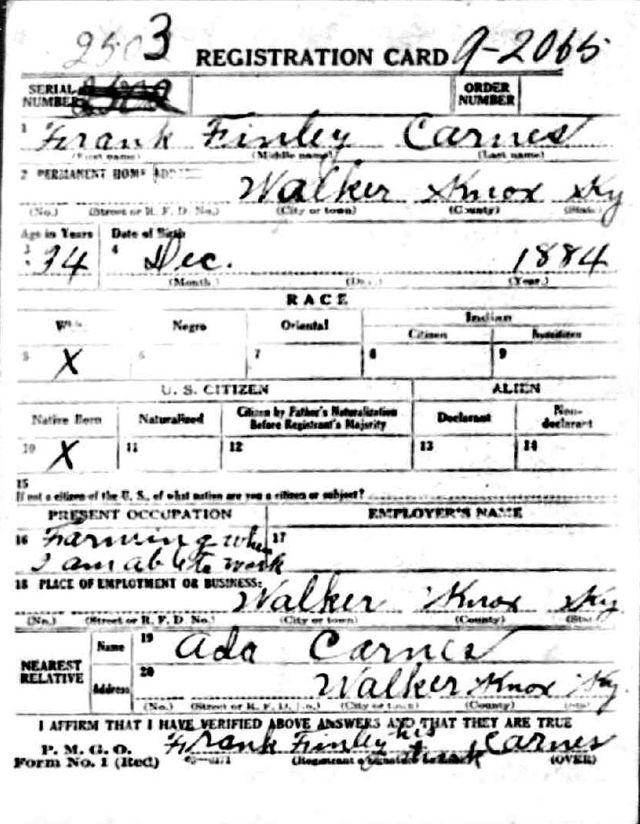 2503 REGISTRATION CARD 9-2065
SERIAL NUMBER ORDER NUMBER
1 Frank Finley Carnes
(First name) (Middle name) (Last name)
2 PERMANENT HOME ADDRESS
Walker Knox Ky
(No.) (Street or R. F. D. No.) (City or town) (County) (State)
Age in Years Date of Birth
3 34 4 Dec. 1884
(Month) (Day) (Year.)
RACE
White Negro Oriental Indian
Citizen Noncitizen
5 X 6 7 8 9
U. S. CITIZEN ALIEN
Native Born Naturalized Citizen by Father's Naturalization Before Registrant's Majority Declarant Non-declarant
10 X 11 12 13 14
15
If not a citizen of the U. S., of what nation are you a citizen or subject?
PRESENT OCCUPATION EMPLOYER'S NAME
16 Farming when 17
I am able to work
18 PLACE OF EMPLOYMENT OR BUSINESS:
Walker Knox Ky
(No.) (Street or R. F. D. No.) (City or town) (County) (State)
NEAREST RELATIVE Name 19 Ada Carnes
Address 20 Walker Knox Ky.
(No.) (Street or R. F. D. No.) (City or town) (County) (State)
I AFFIRM THAT I HAVE VERIFIED ABOVE ANSWERS AND THAT THEY ARE TRUE
P. M. G. O.
Form No. 1 (Red) Frank Finley his mark Carnes
(Registrant's signature or mark) (OVER)